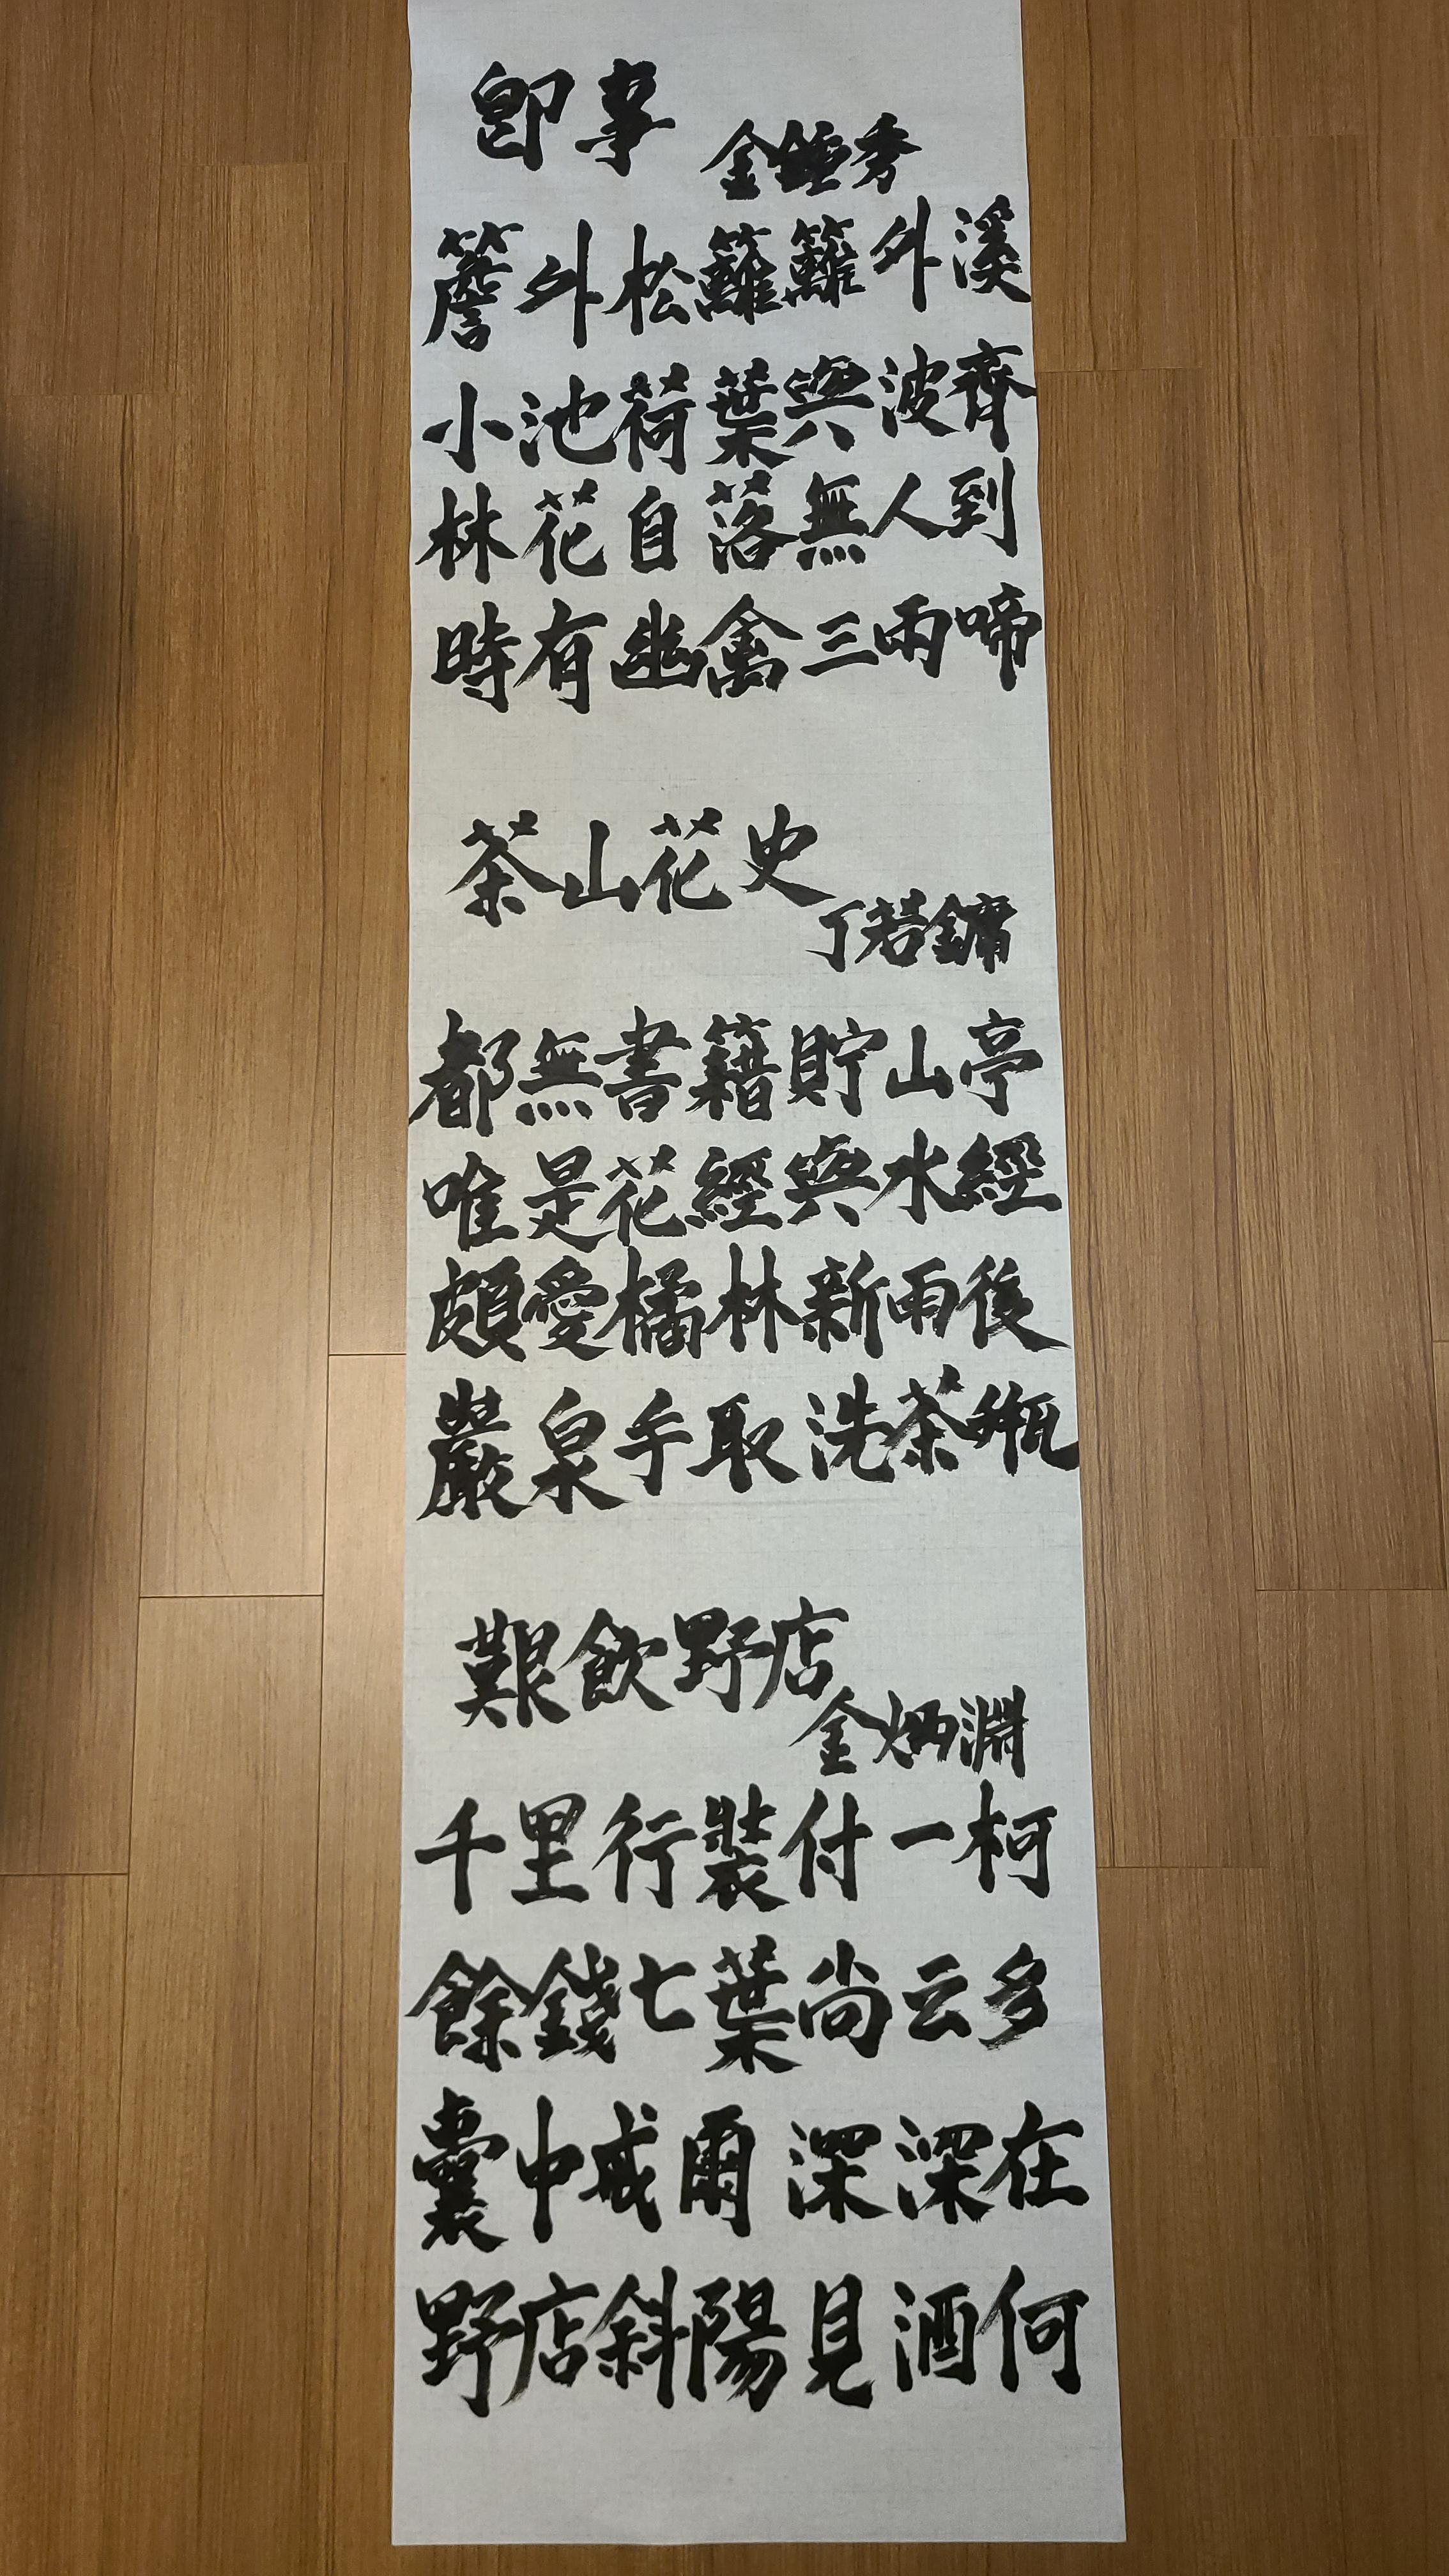 卽事
金鍾秀
簷外松籬籬外溪
小池荷葉與波齊
林花自落無人到
時有幽禽三兩啼
茶山花史
丁若鏞
都無書籍貯山亭
唯是花經與水經
頗愛橘林新雨後
巖泉手取洗茶甁
艱飮野店
金炳淵
千里行裝付一柯
餘錢七葉尙云多
囊中戒爾深深在
野店斜陽見酒何